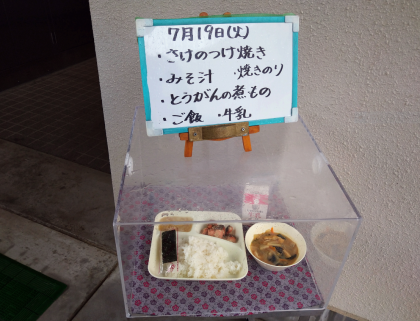 7月19日(火)
・さけのつけ焼き
・みそ汁 ・焼きのり
・とうがんの煮もの
・ご飯 ・牛乳